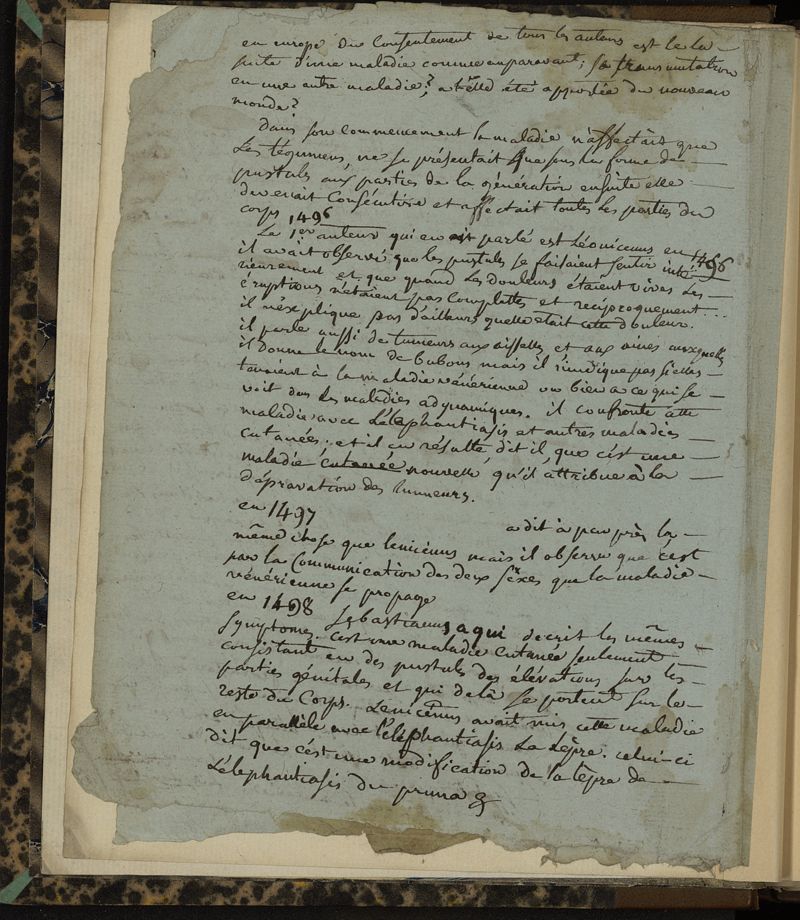 en europe du Consentement de tous les auteurs est le la
suite d'une maladie comme auparavant; sa transmutation
en une autre maladie? a t'elle été apportée du nouveau
monde?
Dans son commencement la maladie n'affectait que
Les tégumens, ne se présentait que sous la forme de
pustules aux parties de la génération ensuite elle
devenait Consécutive et affectait toutes les parties du
corps 1496
Le 1er auteur qui en ait parlé est Léonicenus en 1496
il avait observé que les pustules se faisaient sentir inté-
rieurement et que quand Les douleurs étaient vives Les
éruptions n'étaient pas Complettes et reciproquement...
il n'explique pas d'ailleurs quelle était cette douleur.
il parle aussi de tumeurs aux aisselles et aux aines auxquelles
il donne le nom de bubons mais il n'indique pas si elles
tenaient à la maladie vénérienne ou bien à ce qui se
voit dans les maladies adynamiques. il confronte cette
maladie avec L'élephantiasis et autres maladies
cutanées; et il en résulte, dit il, que c'est une
maladie cutanée nouvelle qu'il attribue à la
dépravation des humeurs.
en 1497
a dit à peu près la
même chose que lenicenus mais il observe que c'est
par la Communication des deux sexes que la maladie
vénérienne se propage
en 1498
Sebastianus aqui décrit les mêmes
Symptomes. c'est une maladie cutanée seulement
consistant en des pustules des élévations sur les
parties génitales et qui delà se portent sur le
reste du Corps. Lenicenus avait mis cette maladie
en parallèle avec l'éléphantiasis La Lèpre. celui-ci
dit que c'est une modification de la lèpre de
L'élephantiasis du